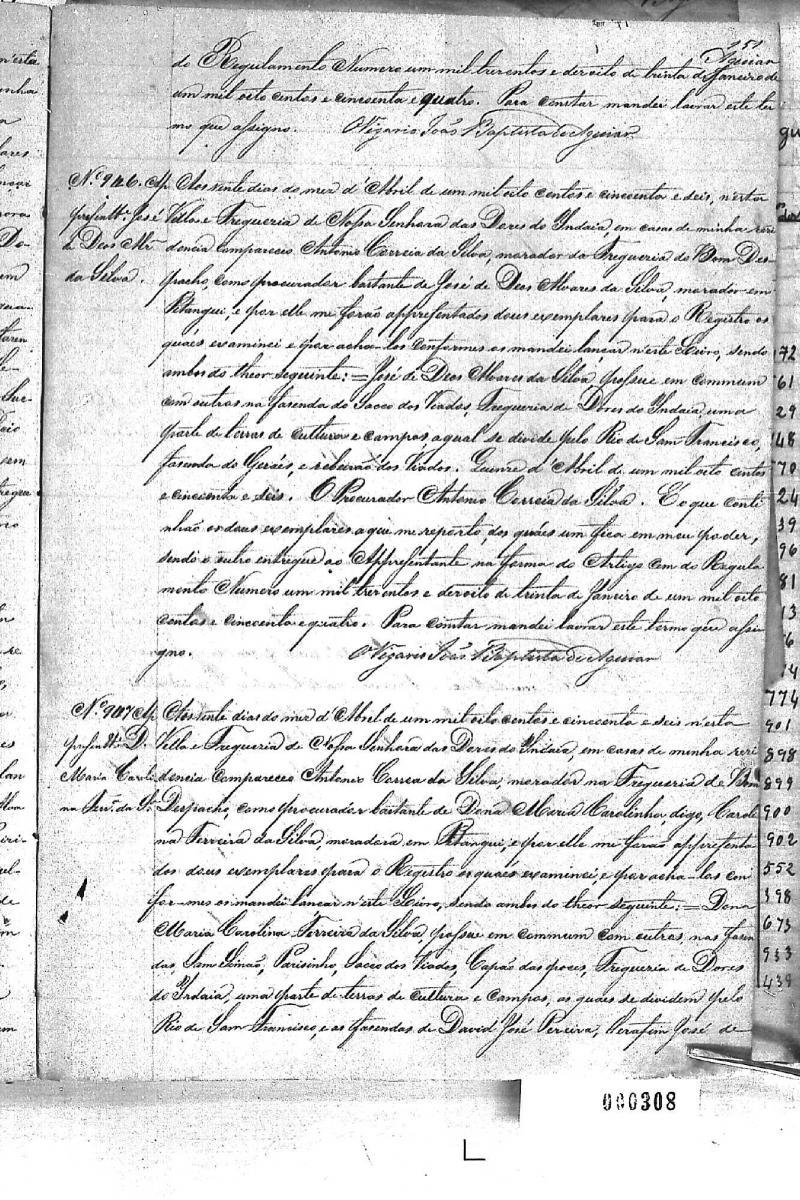 151
Aguiar
do Regulamento Numero um mil trezentos e dezoito de trinta de Janeiro de
um mil oito centos e cincoenta e quatro. Para constar mandei lavrar este ter
mo que assigno. O Vigario João Baptista de Aguiar
Nº 946. Ap Aos vinte dias do mez d'Abril de um mil oito centos e cincoenta e seis, n'esta
José Villa e Fregueria de Nossa Senhora das Dores do Indaiá, em casas de minha rezi
de Deos Alvr dencia compareceo Antonio Correia da Silva, morador da Fregueria do Bom Des-
da Silva. pacho, como procurador bastante de José de Deos Alvares da Silva, morador em
Pitangui, e por elle me forão appresentados dous exemplares para o Registro os
quáes examinei e por acha-los conformes os mandei lancar n'este Livro, sendo
ambos do theor seguinte: = José de Deos Alvares da Silva possue em commum
com outros na fasenda do Socco dos Viados, Fregueria de Dores do Indaia, uma
parte de terras de cultura e campos, a qual se divide pelo Rio de Sam Francisco,
fasenda do Geráes, e rebeirão dos Viados. Quinze d'Abril de um mil oito centos
e cincoenta e seis. O Procurador Antonio Correia da Silva. E o que conti
nhão os dous exemplares a que me reporto, dos quáes um fica em meu poder,
sendo o outro entregue ao Appresentante na forma do Artigo cem do Regula
mento Numero um mil trezentos e dezoito de trinta de Janeiro de um mil oito
centos e cincoenta e quatro. Para constar mandei lavrar este termo que assi
gno. O Vigario João Baptista de Aguiar
Nº 947 Ap Aos vinte dias do mez d'Abril de um mil oito centos e cincoenta e seis n'esta
D. Villa e Fregueria de Nossa Senhora das Dores do Indaia, em casas de minha rezi
Maria Caroli dencia compareceo Antonio Correa da Silva, morador na Fregueria de Bom
na Ferr.ª da Sª Despacho, como procurador bastante de Dona Maria Carolinha digo, Caroli
na Ferreira da Silva, moradora em Pitangui, e por elle me forão appresenta
dos dous exemplares para o Registro os quáes examinei, e por acha-los con
for-mes os mandei lancar n'este Livro, sendo ambos do theor seguinte: = Dona
Maria Carolina Ferreira da Silva possue em commum com outros, nas fasen
das, Sam Simão, Parisinho, Socco dos Viados, Capão das poces, Fregueria de Dores
do Indaia, uma parte de terras de cultura e campos, as quaes se dividem pelo
Rio de Sam Francisco, e as fasendas de David José Pereira, Serafim José de
72
61
29
48
70
24
39
96
81
13
6
14
774
901
898
899
900
902
552
398
673
933
439
000308